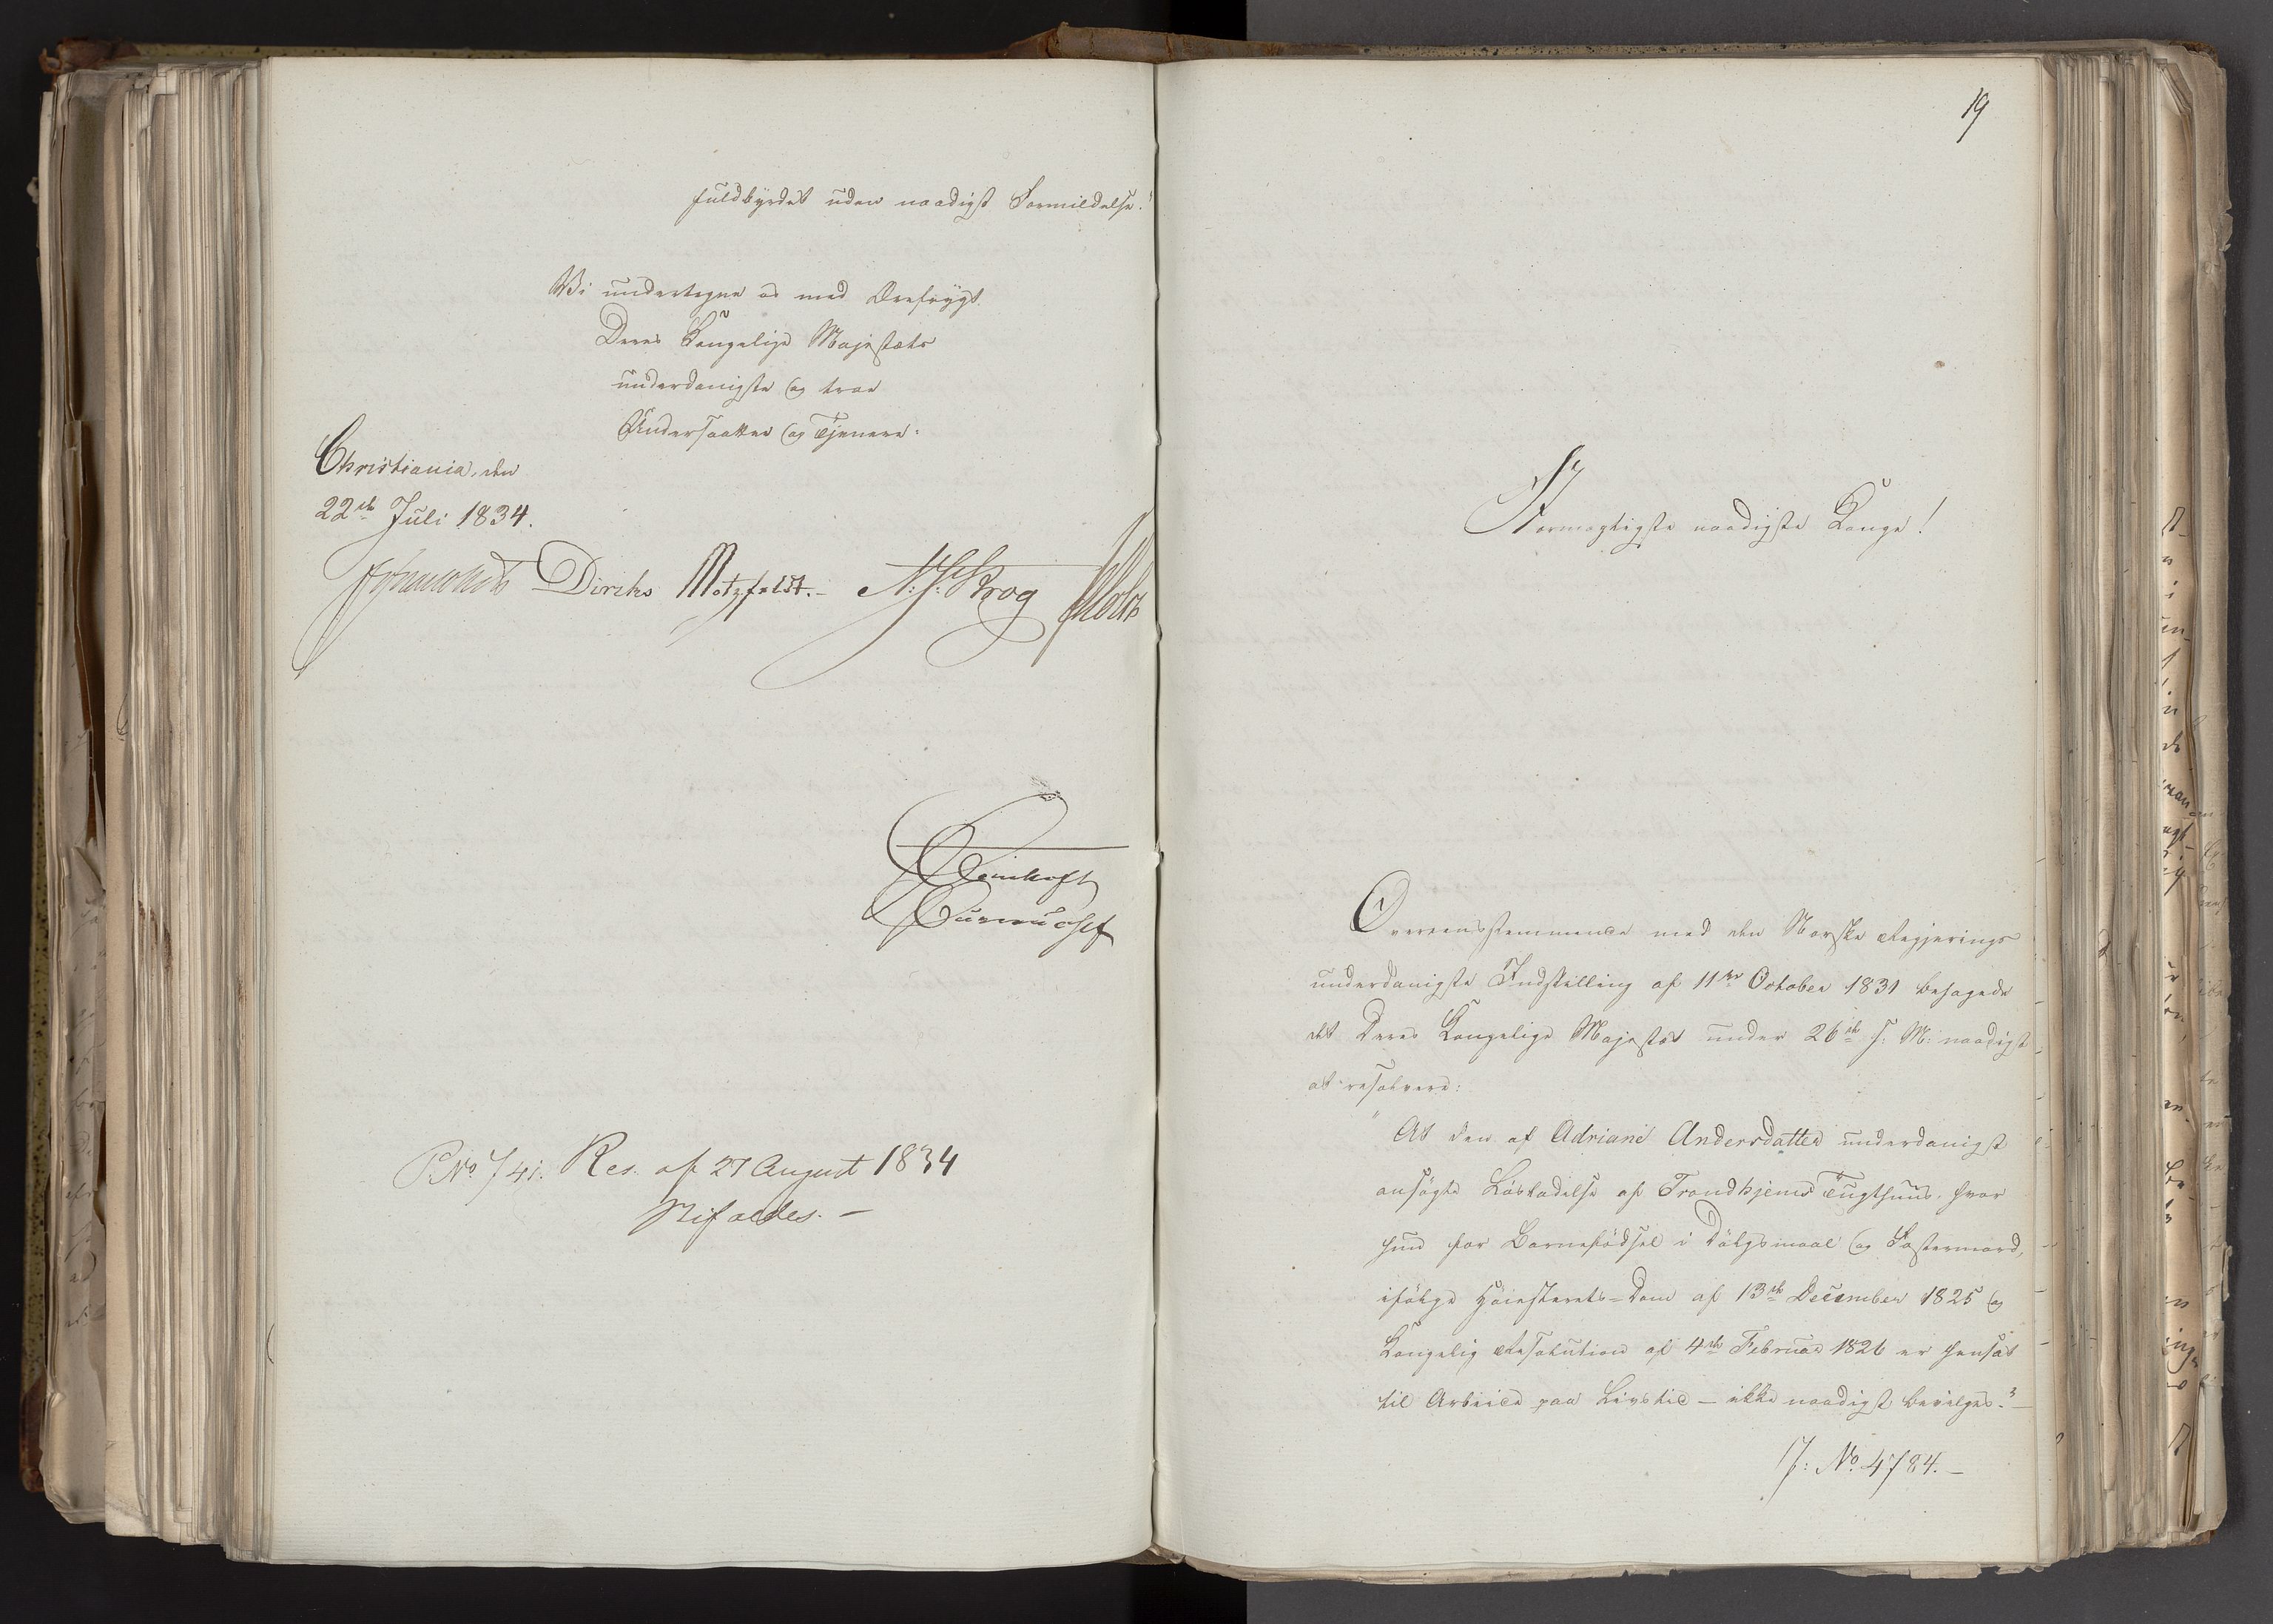 fuldbyrdet uden naadigst Formildelse."
Vi undertegne os med Ærefrygt
Deres Kongelige Majestæts
underdanigste og troe
Undersaatter og Tjenere.
Christiania, den
22de Juli 1834.
Diriks Motzfeldt.- N. J. Krog Holst
P. No. 741. Res. af 27 August 1834
Bifaldes. -
19
Stormægtigste naadigste Konge!
Overeensstemmende med den Norske Regjerings
underdanigste Indstilling af 11te October 1831 behagede
det Deres Kongelige Majestæt under 26de s: M: naadigst
at resolvere:
"At den af Adriane Andersdatter underdanigst
ansøgte Løsladelse af Trondhjems Tugthuus, hvor
hun for Barnefødsel i Dølgsmaal og Fostermord,
ifølge Høiesterets-Dom af 13de December 1825 og
Kongelig Resolution af 4de Februar 1826 er hensat
til Arbeide paa Livstid - ikke naadigst bevilges." -
J: No. 4784. -